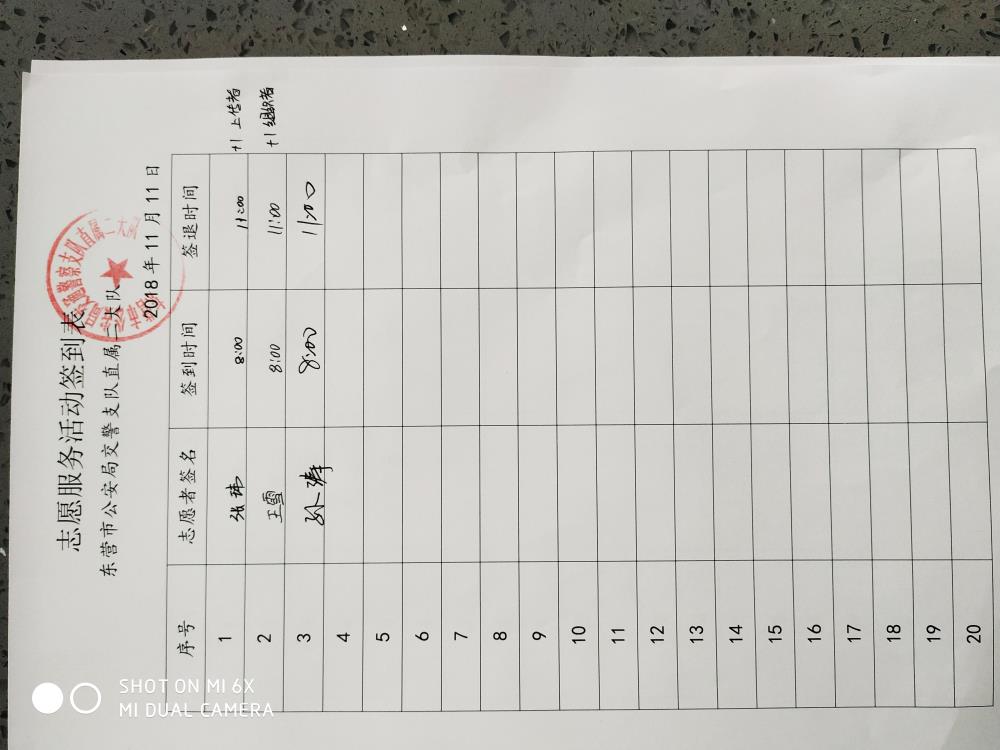 志愿服务活动签到表
东营市公安局交警支队直属二大队
2018 年 11 月 11 日
序号 志愿者签名 签到时间 签退时间
1 张玮 8:00 11:00 +1 上传者
2 王雪 8:00 11:00 +1 组织者
3 8:00 11:00
4
5
6
7
8
9
10
11
12
13
14
15
16
17
18
19
20
SHOT ON MI 6X
MI DUAL CAMERA